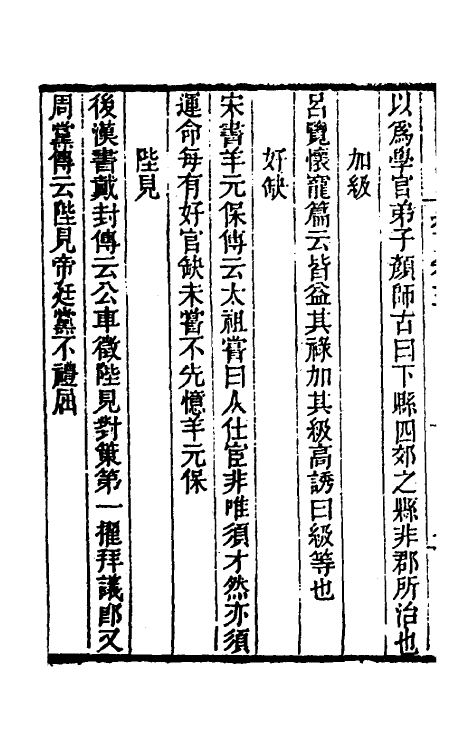 以爲學官弟子顏師古曰下縣四郊之縣非郡所治也
加級
呂覽懷寵篇云皆益其祿加其級高誘曰級等也
好缺
宋書羊元保傳云太祖嘗曰人仕宦非唯須才然亦須
運命每有好官缺未嘗不先憶羊元保
陛見
後漢書戴封傳云公車徵陛見對策第一擢拜議郎又
周黨傳云陛見帝廷黨不禮屈